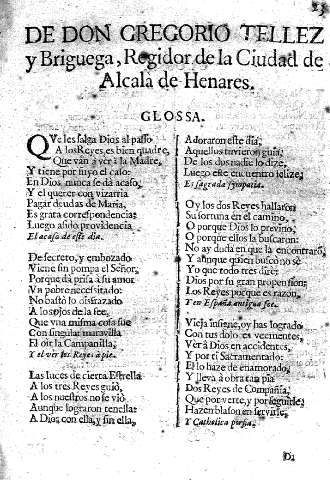 DE DON GREGORIO TELLEZ
y Briguega, Regidor de la Ciudad de
Alcalà de Henares.
GLOSSA.
QVe les salga Dios al passo
A los Reyes, es bien quadre,
Que vàn à vèr à la Madre,
Y tiene por suyo el caso:
En Dios nunca se dà acaso,
Y el querer con vizarria
Pagar deudas de Maria,
Es grata correspondencia:
Luego assido providencia
El acaso de este dia.
De secreto, y embozado
Viene sin pompa el Señor,
Porque dà prisa à su amor
Vn pobre necessitado:
No bastò lo disfrazado
A los ojos de la fee,
Que vna misma cosa fue
Con singular maravilla
El oìr la Campanilla,
Y el vèr los Reyes à pie.
Las luces de cierta Estrella
A los tres Reyes guiò,
A los nuestros no se viò
Aunque lograron tenella:
A Dios con ella, y sin ella
Adoraron este dia,
Aquellos tuvieron guia,
De los dos nadie lo dize,
Luego este encuentro felize,
Es sagrada sympatia.
Oy los dos Reyes hallaron
Su fortuna en el camino,
O porque Dios lo previno,
O porque ellos la buscaron:
No ay duda en que la encontraron,
Y aunque quien buscò no sè
Yo que todo tres dirè:
Dios por su gran propension;
Los Reyes porque es razon,
Y en España antigua fee.
Vieja insigne, oy has logrado
Con tus dolores vehementes,
Vèr à Dios en accidentes,
Y por tì Sacramentado:
El lo haze de enamorado,
Y lleva à obra tan pia
Dos Reyes de Compañia,
Que por verte, y por seguirle;
Hazen blason en servirle,
Y Catholica porfia.